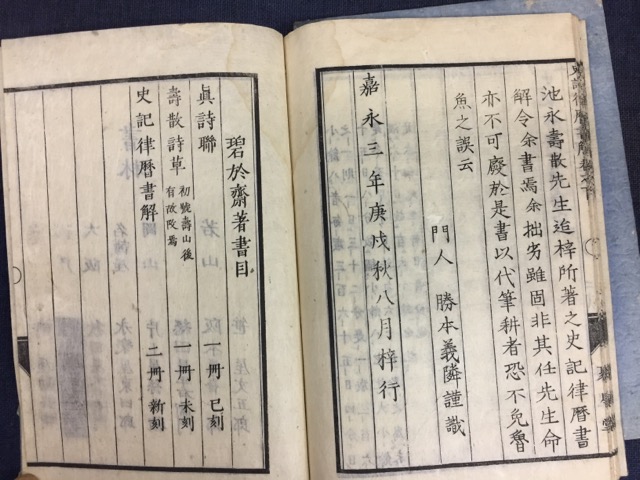 池永壽散先生迨梓所著之史記律曆書
解令余書焉余拙劣雖固非其任先生命
亦不可廢於是書以代筆耕者恐不免魯
魚之誤云
門人 勝本義隣謹識
嘉永三年庚戌秋八月梓行
碧於齋著書目
眞詩聯 一冊 已刻
壽散詩草 初號壽山後有故改焉 一冊 未刻
史記律曆書解 二冊 新刻